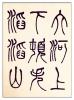 大河上
下頓失
滔滔山